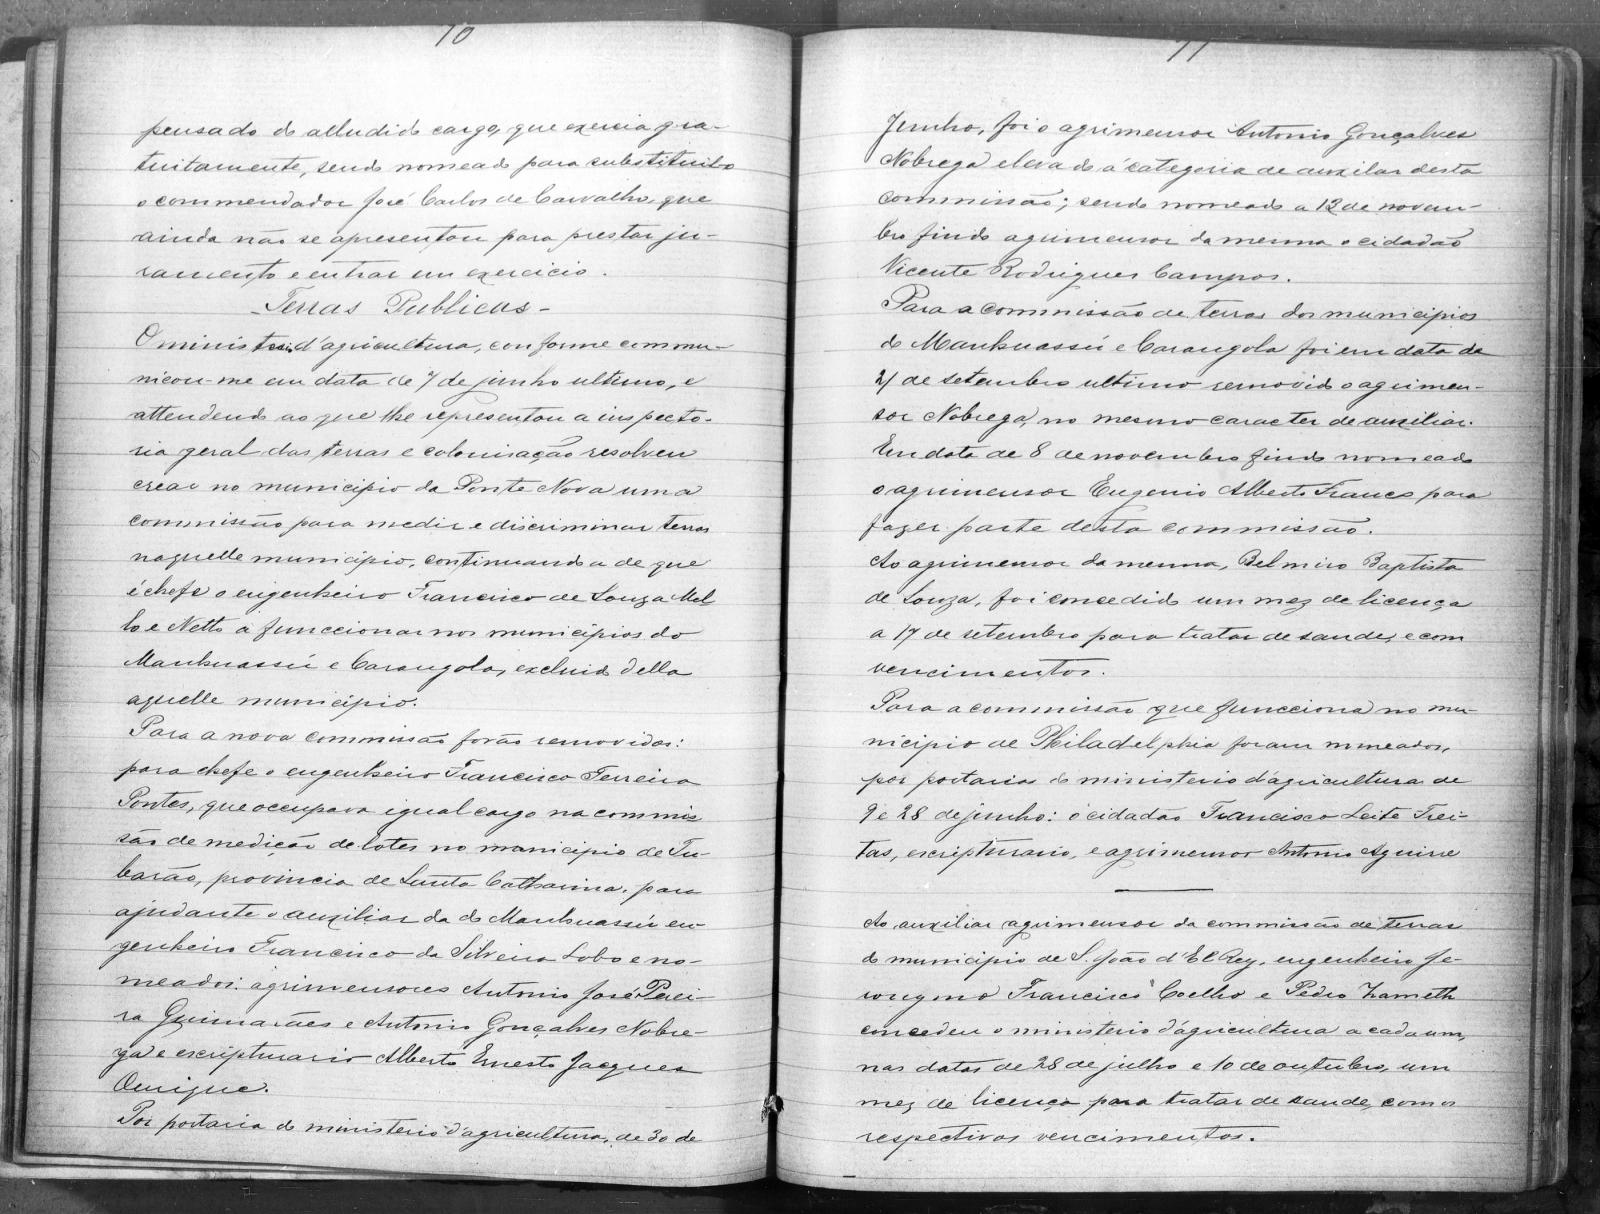 10
pensado do alludido cargo, que exercia gra-
tuitamente, sendo nomeado para substituil-o
o commendador José Carlos de Carvalho, que
ainda não se apresentou para prestar ju-
ramento e entrar em exercicio.
- Terras Publicas -
O ministerio d'agricultura, conforme commu-
nicou-me em data de 7 de junho ultimo, e
attendendo ao que lhe representou a inspecto-
ria geral das terras e colonisação resolveu
crear no municipio da Ponte Nova uma
commissão para medir e discriminar terras
naquelle municipio, continuando a de que
é chefe o engenheiro Francisco de Souza Mel
lo e Netto a funccionar nos municipios do
Manhuassú e Carangola, excluido della
aquelle municipio.
Para a nova commissão forão removidos:
para chefe o engenheiro Francisco Ferreira
Pontes, que occupava igual cargo na commis
são de medição de lotes no municipio de Tu-
barão, provincia de Santa Catharina, para
ajudante o auxiliar da do Manhuassú en-
genheiro Francisco da Silveira Lobo e no-
meados: agrimensores Antonio José Perei-
ra Guimarães e Antonio Gonçalves Nobre-
ga e escripturario Alberto Ernesto Jacques
Ourique.
Por portaria do ministerio d'agricultura, de 30 de
11
Junho, foi o agrimensor Antonio Gonçalves
Nobrega elevado á categoria de auxilar desta
commissão; sendo nomeado a 12 de novem-
bro findo agrimensor da mesma o cidadão
Vicente Rodrigues Campos.
Para a commissão de terras dos municipios
do Manhuassú e Carangola foi em data de
21 de setembro ultimo removido o agrimen-
sor Nobrega, no mesmo caracter de auxiliar.
Em data de 8 de novembro findo nomeado
o agrimensor Eugenio Alberto Franco para
fazer parte desta commissão.
Ao agrimensor da mesma, Belmiro Baptista
de Souza, foi concedido um mez de licença
a 17 de setembro para tratar de saude, e com
vencimentos.
Para a commissão que funcciona no mu-
nicipio de Philadelphia foram nomeados,
por portarias do ministerio d'agricultura de
9 e 28 de junho: o cidadão Francisco Leite Frei-
tas, escripturario, e agrimensor Antonio Aguirre
Ao auxiliar agrimensor da commissão de terras
do municipio de S. João d'El Rey, engenheiro Je-
ronymo Francisco Coelho e Pedro
concedeu o ministerio d'agricultura a cada um,
nas datas de 28 de julho e 10 de outubro, um
mez de licença para tratar de saude, com os
respectivos vencimentos.